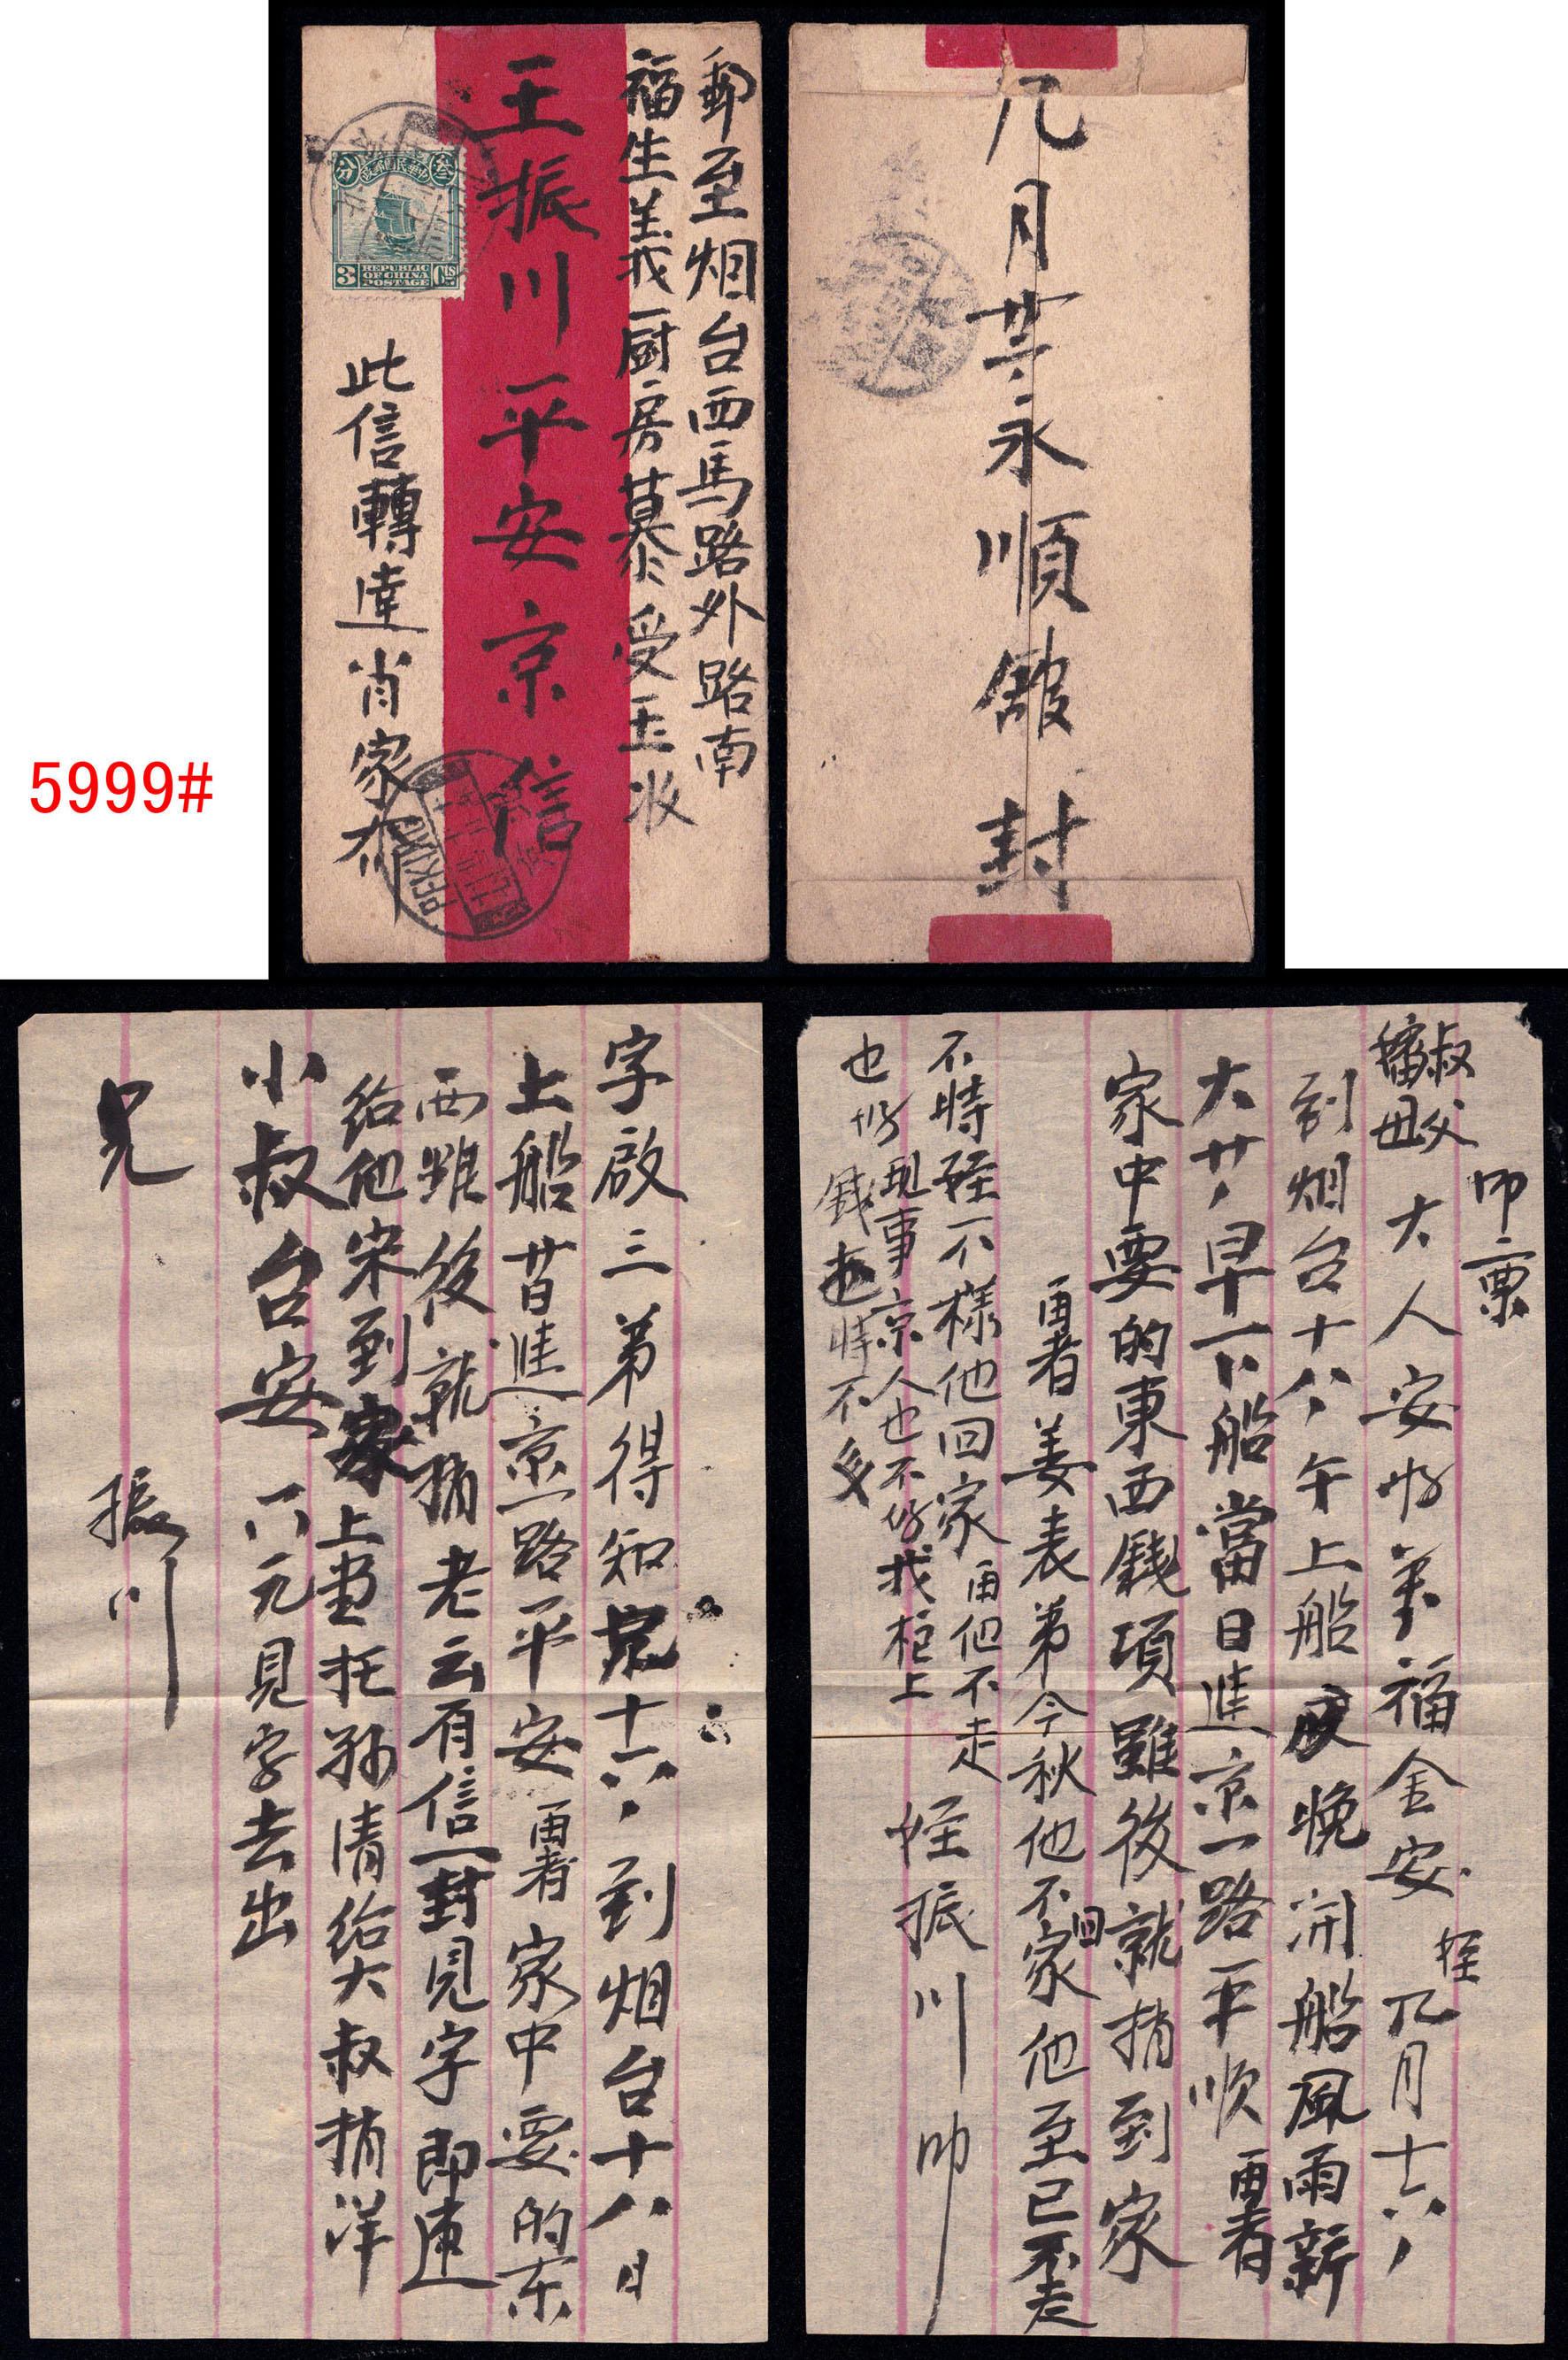 郵至烟台西馬路外路南
福生義厨房慕受玉收
王振川平安京信
此信轉達肖家
叁 分
中華民國郵政
3 Cts
REPUBLIC
OF CHINA
POSTAGE
PEKING
九月廿二永順館封
5999#
叩稟
叔父
嬸母
大人安好並福金安 侄九月十六
到烟台十八午上船夜晚開船風雨薪
大廿早下船當日進京一路平順 再者
家中要的東西錢項雖後就捎到家
再者姜表弟今秋他不回家他至已不走
不時侄不樣他回家再他不走
也好現事京人也不好找柜上
錢也恃不多
侄振川叩
字啟三弟得知 十六到烟台十八日
上船廿日進京一路平安 再者家中要的东
西雖後就捎老云有信一封見字即速
給他宋到家上 托孙清给大叔捎洋
小叔台安 八元見字去出
兄
振川